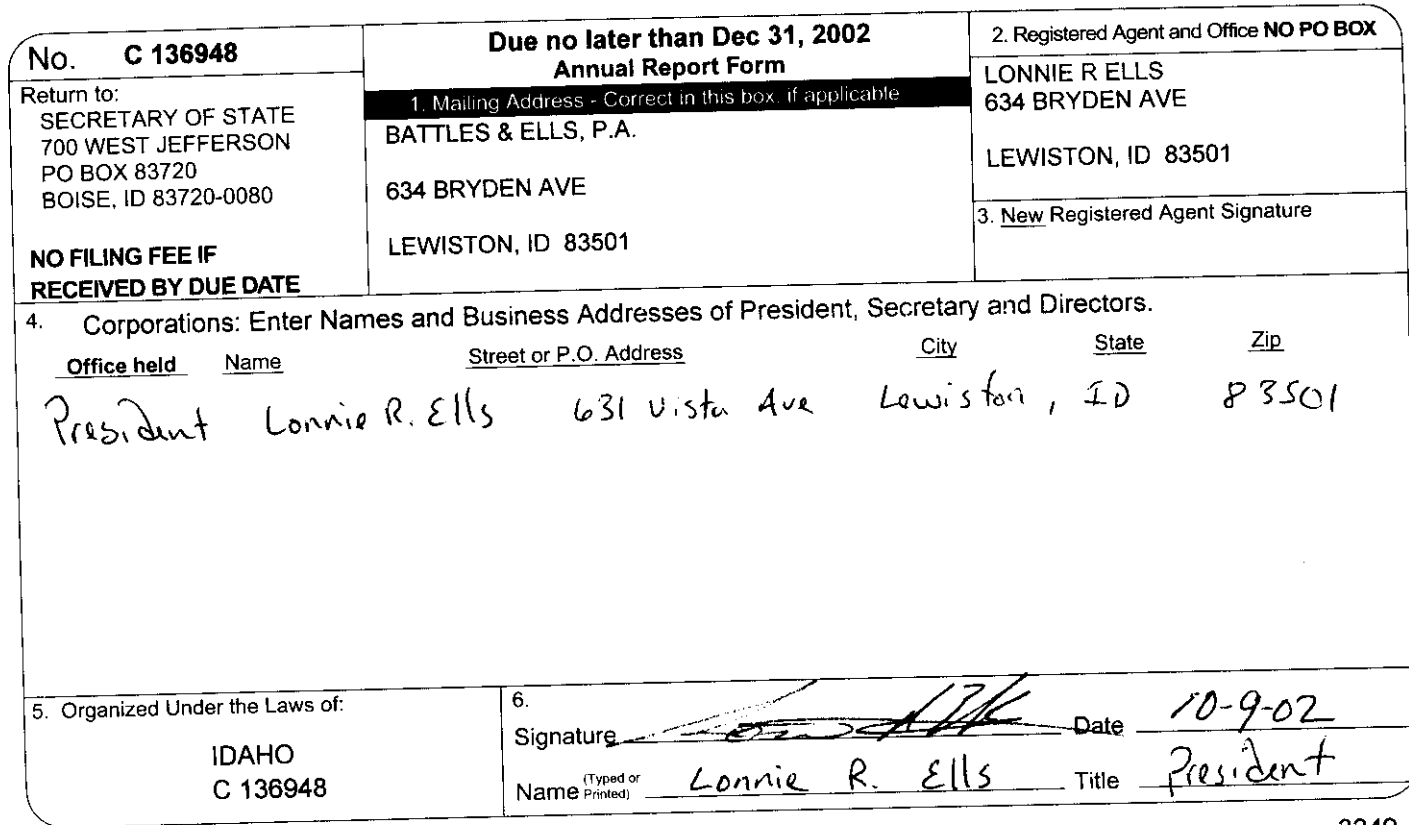 No. C 136948
Return to:
SECRETARY OF STATE
700 WEST JEFFERSON
PO BOX 83720
BOISE, ID 83720-0080
NO FILING FEE IF
RECEIVED BY DUE DATE
Due no later than Dec 31, 2002
Annual Report Form
1. Mailing Address - Correct in this box, if applicable
BATTLES & ELLS, P.A.
634 BRYDEN AVE
LEWISTON, ID 83501
2. Registered Agent and Office NO PO BOX
LONNIE R ELLS
634 BRYDEN AVE
LEWISTON, ID 83501
3. New Registered Agent Signature
4. Corporations: Enter Names and Business Addresses of President, Secretary and Directors.
Office held Name Street or P.O. Address City State Zip
President Lonnie R. Ells 631 Vista Ave Lewiston, ID 83501
5. Organized Under the Laws of:
IDAHO
C 136948
6.
Signature Date 10-9-02
Name (Typed or Printed) Lonnie R. Ells Title President